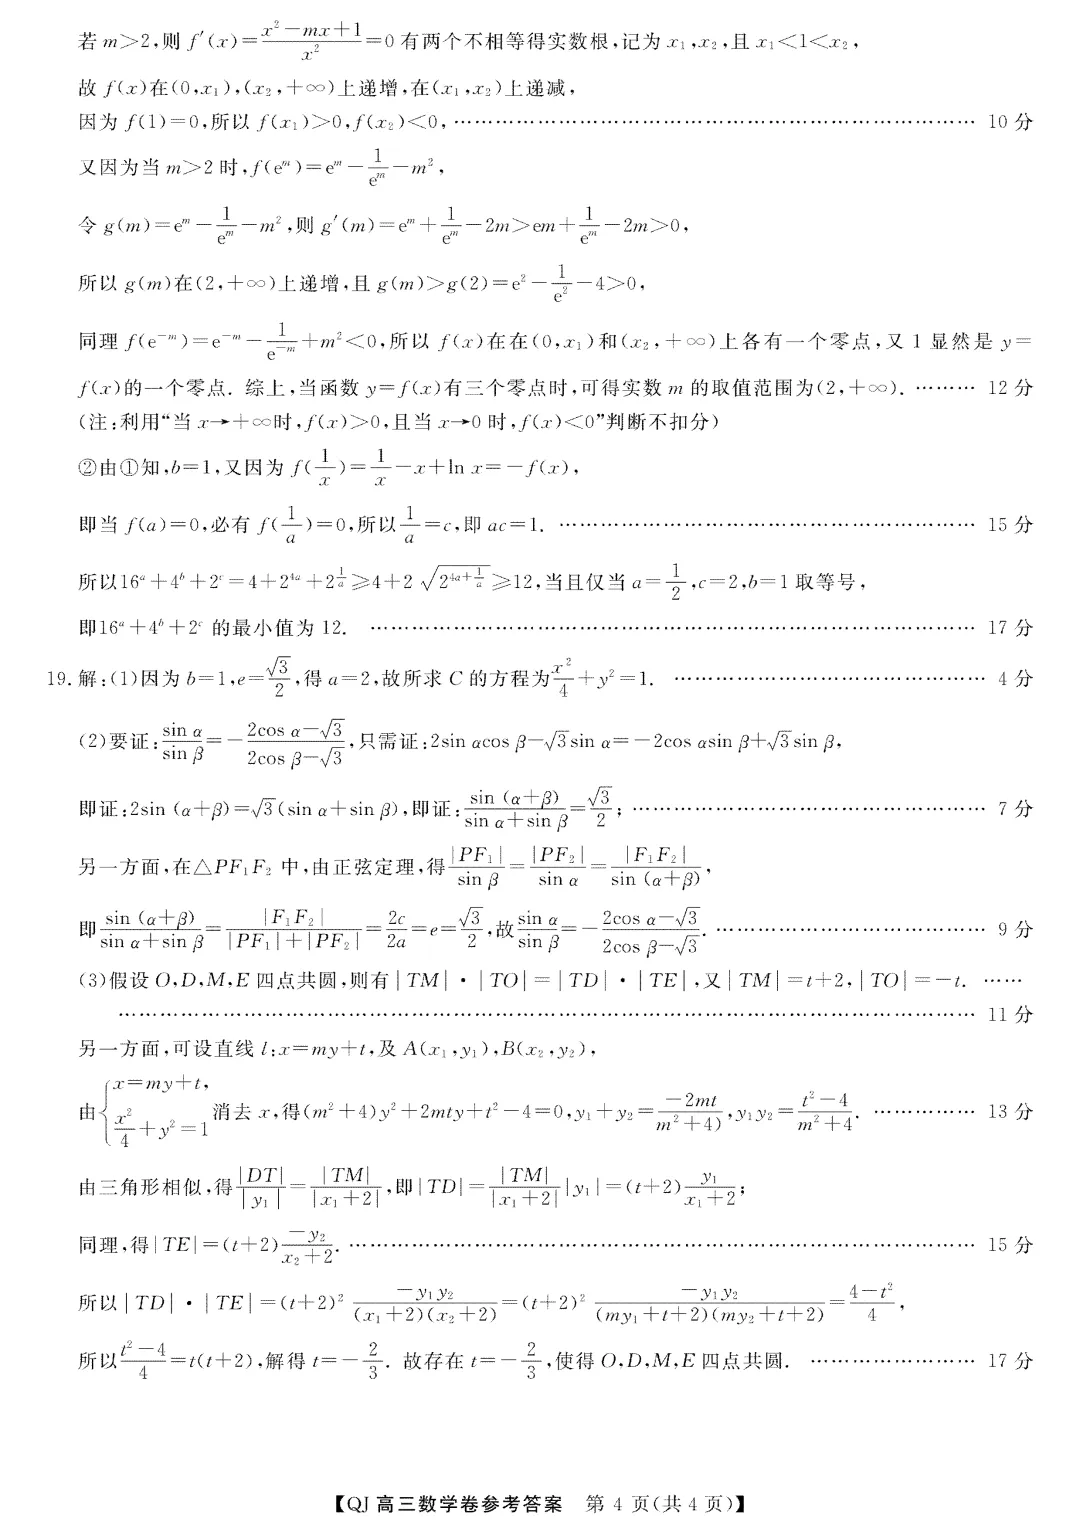 若 m>2,则 f′(x)=(x²−mx+1)/x²=0 有两个不相等得实数根,记为 x₁,x₂,且 x₁<1<x₂,
故 f(x)在(0,x₁),(x₂,+∞)上递增,在(x₁,x₂)上递减,
因为 f(1)=0,所以 f(x₁)>0,f(x₂)<0,…………………………………… 10 分
又因为当 m>2 时,f(eᵐ)=eᵐ−1/eᵐ−m²,
令 g(m)=eᵐ−1/eᵐ−m²,则 g′(m)=eᵐ+1/eᵐ−2m>em+1/eᵐ−2m>0,
所以 g(m)在(2,+∞)上递增,且 g(m)>g(2)=e²−1/e²−4>0,
同理 f(e⁻ᵐ)=e⁻ᵐ−1/e⁻ᵐ+m²<0,所以 f(x)在在(0,x₁)和(x₂,+∞)上各有一个零点,又 1 显然是 y=
f(x)的一个零点. 综上,当函数 y=f(x)有三个零点时,可得实数 m 的取值范围为(2,+∞). ……… 12 分
(注:利用“当 x→+∞时,f(x)>0,且当 x→0 时,f(x)<0”判断不扣分)
②由①知,b=1,又因为 f(1/x)=1/x−x+ln x=−f(x),
即当 f(a)=0,必有 f(1/a)=0,所以1/a=c,即 ac=1. …………………………………… 15 分
所以16ᵃ+4ᵇ+2ᶜ=4+2⁴ᵃ+2^(1/a)≥4+2√(2^(4a+1/a))≥12,当且仅当 a=1/2,c=2,b=1 取等号,
即16ᵃ+4ᵇ+2ᶜ 的最小值为 12. …………………………………… 17 分
19. 解:(1)因为 b=1,e=√3/2,得 a=2,故所求 C 的方程为x²/4+y²=1. …………………………………… 4 分
(2)要证:sin α/sin β=−(2cos α−√3)/(2cos β−√3),只需证:2sin αcos β−√3sin α=−2cos αsin β+√3sin β,
即证:2sin (α+β)=√3(sin α+sin β),即证:sin (α+β)/(sin α+sin β)=√3/2; …………………………………… 7 分
另一方面,在△PF₁F₂ 中,由正弦定理,得|PF₁|/sin β=|PF₂|/sin α=|F₁F₂|/sin (α+β),
即sin (α+β)/(sin α+sin β)=|F₁F₂|/(|PF₁|+|PF₂|)=2c/2a=e=√3/2,故sin α/sin β=−(2cos α−√3)/(2cos β−√3). …………………………………… 9 分
(3)假设 O,D,M,E 四点共圆,则有|TM|·|TO|=|TD|·|TE|,又|TM|=t+2,|TO|=−t. ……
…………………………………… 11 分
另一方面,可设直线 l:x=my+t,及 A(x₁,y₁),B(x₂,y₂),
由{x=my+t, x²/4+y²=1 消去 x,得(m²+4)y²+2mty+t²−4=0,y₁+y₂=−2mt/m²+4),y₁y₂=(t²−4)/(m²+4). …………… 13 分
由三角形相似,得|DT|/|y₁|=|TM|/|x₁+2|,即|TD|=|TM|/|x₁+2| |y₁|=(t+2)y₁/(x₁+2);
同理,得|TE|=(t+2)−y₂/(x₂+2). …………………………………… 15 分
所以|TD|·|TE|=(t+2)² −y₁y₂/((x₁+2)(x₂+2))=(t+2)² −y₁y₂/((my₁+t+2)(my₂+t+2))=(4−t²)/4,
所以(t²−4)/4=t(t+2),解得 t=−2/3. 故存在 t=−2/3,使得 O,D,M,E 四点共圆. …………………… 17 分
【QJ 高三数学卷参考答案　第 4 页(共 4 页)】